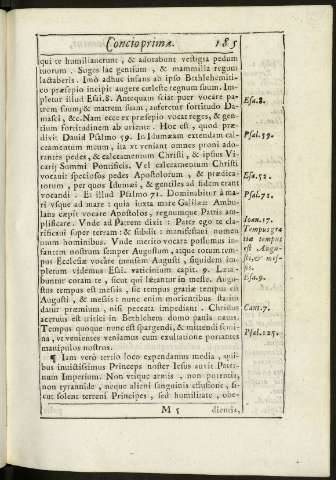 Concio prima. 185
qui te humiliauerunt, & adorabunt vestigia pedum
tuorum. Suges lac gentium, & mammilla regum
lactaberis. Imò adhuc infans ab ipso Bethlehemiti-
co præsepio incipit augere cæleste regnum suum. Im-
pletur illud Esai.8. Antequam sciat puer vocare pa-
trem suum, & matrem suam, auferetur fortitudo Da-
masci, &c. Nam ecce ex præsepio vocat reges, & gen-
tium fortitudinem ab oriente. Hoc est, quod præ-
dixit David Psalmo 59. In Idumæam extendam cal-
ceamentum meum, ita vt veniant omnes proni ado-
rantes pedes, & calceamentum Christi, & ipsius Vi-
carij Summi Pontificis. Vel calceamentum Christi
vocauit speciosus pedes Apostolorum, & prædica-
torum, per quos Idumæi, & gentiles ad fidem erant
vocandi. Et illud Psalmo 71. Dominabitur à ma-
ri vsque ad mare: quia iuxta mare Galilææ Ambu-
lans cæpit vocare Apostolos, regnumque Patris am-
plificare. Vnde ad Patrem dixit: Pater ego te cla-
rificaui super terram: & subdit: manifestaui nomen
tuum hominibus. Vnde merito vocare possumus in-
fantem nostrum semper Augustum, atque totum tem-
pus Ecclesiæ vocare mensem Augusti, siquidem im-
pletum videmus Esai. vaticinium capit. 9. Læta-
buntur coram te, sicut qui lætantur in messe. Augu-
stus tempus est messis, sic tempus gratiæ tempus est
Augusti, & messis: nunc enim morientibus statim
datur præmium, nisi peccata impediant. Christus
aceruus est tritici in Bethlehem domo panis natus.
Tempus quoque nunc est spargendi, & mittendi semi-
na, vt venientes veniamus cum exultatione portantes
manipulos nostros.
¶ Iam verò tertio loco expendamus media, qui-
bus inuictissimus Princeps noster Iesus auxit Pater-
num Imperium. Non vtique armis, non potentia,
non tyrannide, neque alieni sanguinis effusione, si-
cut solent terreni Principes, sed humilitate, obe-
M 5 dientia,
Esa.8.
Psal.59.
Esa.52.
Psal.71.
Ioan.17.
Tempus gra
tiæ tempus
est Augu-
sti, & mes-
sis.
Esa.9.
Cant.7.
Psal.125.